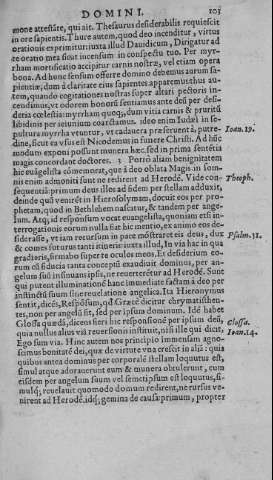 DOMINI. 103
mone attestäte, qui ait. Thesaurus desiderabilis requiescit
in ore sapientis. Thure autem, quod deo incenditur, virtus
orationis exprimitur iuxta illud Dauidicum, Dirigatur ad
te oratio mea sicut incensum in conspectu tuo. Per myr-
rham mortificatio accipitur carnis nostræ, vel etiam opera
bona. Ad hunc sensum offerre domino debemus aurum sa-
pientiæ, dum à claritate eius sapientes apparemus thus au-
tem, quando cogitationes nostras super altari pectoris in-
cendimus, vt odorem honoris sentiamus ante deū per desi-
deria cœlestia: myrrham quoq;, dum vitia carnis & pruritus
libidinis per ieiunium coarctamus. ideo enim Iudæi in se-
pultura myrrha vtuntur, vt cadauera præseruent à, putre-
dine, sicut ea vsus est Nicodemus in funere Christi. Ad huc
modum exponi possunt munera hæc, sed in prima sētētia
magis concordant doctores. 3 Porrò aliam benignitatem
hic euāgelista cōmemorat, quę à deo oblata Magis in som-
nis enim admoniti sunt ne redirent ad Herodē. Vide con-
sequentiā: primum deus illos ad fidem per stellam adduxit,
deinde quū venirēt in Hierosolymam, docuit eos per pro-
phetam, quod in Bethlehem nascatur, & tandem per ange-
lum. Atq; id responsum vocat euangelista, quoniam etsi in-
terrogationis eorum nulla fiat hic mentio, ex animo eos de-
siderasse, vt iam recursum in pace mōstraret eis deus, dux
& comes futurus tanti itineris: iuxta illud, In via hac in qua
gradieris, firmabo super te oculos meos. Et desideriū eo-
rum cū fiducia tanta conceptū exaudiuit dominus, per an-
gelum suū insinuans ipsis, ne reuerterētur ad Herodē. Sunt
qui putent illuminationē hanc immediatè factam à deo per
instinctū suum sine reuelatione angelica. Ita Hieronymus
sentit, dicēs, Respōsum, qd Græcè dicitur chrymatisthen-
tes, non per angelū fit, sed per ipsum dominum. Idē habet
Glossa quædā, dicens fieri hic responsionē per ipsum deū,
qui à nullius alius viā reuersionis instituit, nisi ille qui dicit,
Ego sum via. Hinc autem nos principio immensam agno-
scimus bonitatē dei, quæ de virtute vna crescit in aliā: quia
quibus antea dominus per corporalē stellam loquutus est,
simul atque adorauerunt eum & munera obtulerunt, cum
eisdem per angelum suum vel semetipsum est loquutus, si-
mulq; reuelauit quomodo domum redirent, ne rursus ve-
nirent ad Herodē. idq; gemina de causa: primum, propter
Ioan.19.
Theoph.
Psalm.31.
Glossa.
Ioan.14.